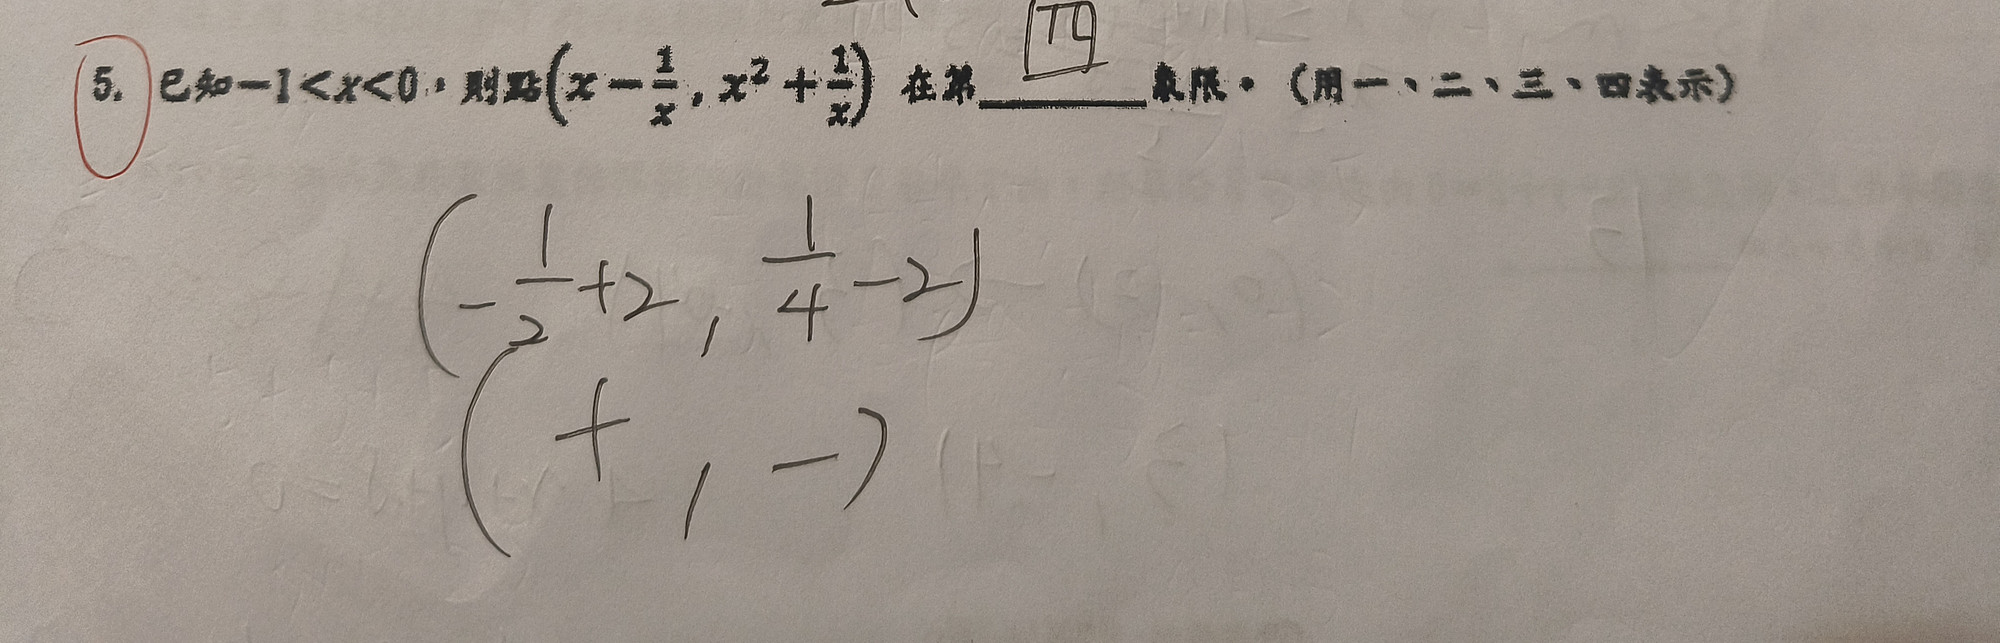 四
5. 已知-1<x<0，則點(x-1/x, x²+1/x) 在第______象限。(用一、二、三、四表示)
(-1/2+2, 1/4-2)
(+, -)